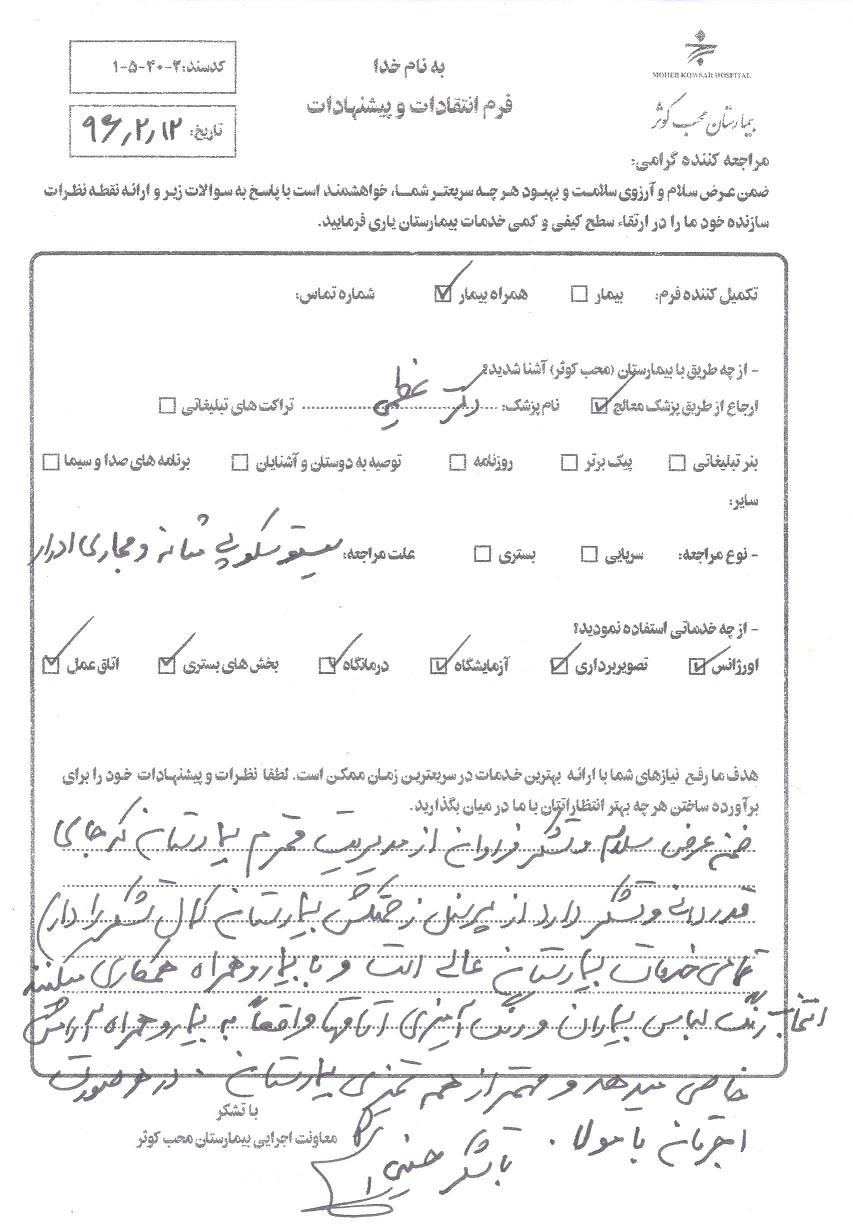 به نام خدا
فرم انتقادات و پیشنهادات
MOHEB KOWSAR HOSPITAL
بیمارستان محب کوثر
کدسند: ۲-۴۰-۵-۱
تاریخ: ۹۶٫۲٫۱۲
مراجعه کننده گرامی:
ضمن عرض سلام و آرزوی سلامت و بهبود هر چه سریعتر شما، خواهشمند است با پاسخ به سوالات زیر و ارائه نقطه نظرات
سازنده خود ما را در ارتقاء سطح کیفی و کمی خدمات بیمارستان یاری فرمایید.
تکمیل کننده فرم: بیمار ☐ همراه بیمار ☑ شماره تماس:
- از چه طریق با بیمارستان (محب کوثر) آشنا شدید؟
ارجاع از طریق پزشک معالج ☑ نام پزشک: دکتر تراکت های تبلیغاتی ☐
بنر تبلیغاتی ☐ پیک برتر ☐ روزنامه ☐ توصیه به دوستان و آشنایان ☐ برنامه های صدا و سیما ☐
سایر:
- نوع مراجعه: سرپایی ☐ بستری ☐ علت مراجعه: سیستوسکوپی مثانه و مجاری ادرار
- از چه خدماتی استفاده نمودید؟
اورژانس ☑ تصویربرداری ☑ آزمایشگاه ☑ درمانگاه ☑ بخش های بستری ☑ اتاق عمل ☑
هدف ما رفع نیازهای شما با ارائه بهترین خدمات در سریعترین زمان ممکن است. لطفا نظرات و پیشنهادات خود را برای
برآورده ساختن هر چه بهتر انتظاراتتان با ما در میان بگذارید.
ضمن عرض سلام و تشکر فراوان از مدیریت محترم بیمارستان که جای
قدردانی و تشکر دارد از پرسنل زحمتکش بیمارستان کمال تشکر را دارم
تمامی خدمات بیمارستان عالی است و با بیمار و همراه همکاری میکنند
انتخاب رنگ لباس بیماران و رنگ آمیزی اتاقها واقعاً به بیمار و همراه آرامش
خاصی میدهد و مهمتر از همه تمیزی بیمارستان . در هر صورت
اجرتان با مولا .
با تشکر
معاونت اجرایی بیمارستان محب کوثر
با تشکر حسینی